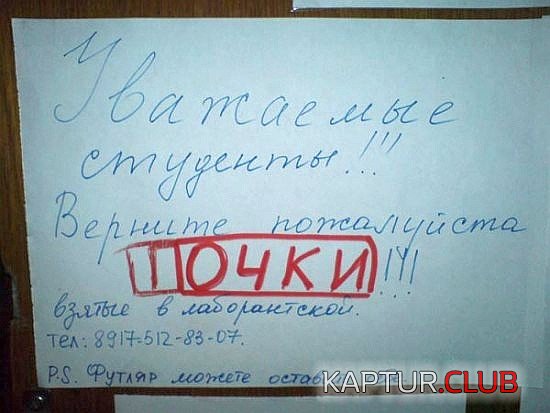 Уважаемые
студенты!!!
Верните пожалуйста
ТОЧКИ!!!
взятые в лаборантской.
тел: 8917-512-83-07.
P.S. Футляр можете
KAPTUR.CLUB